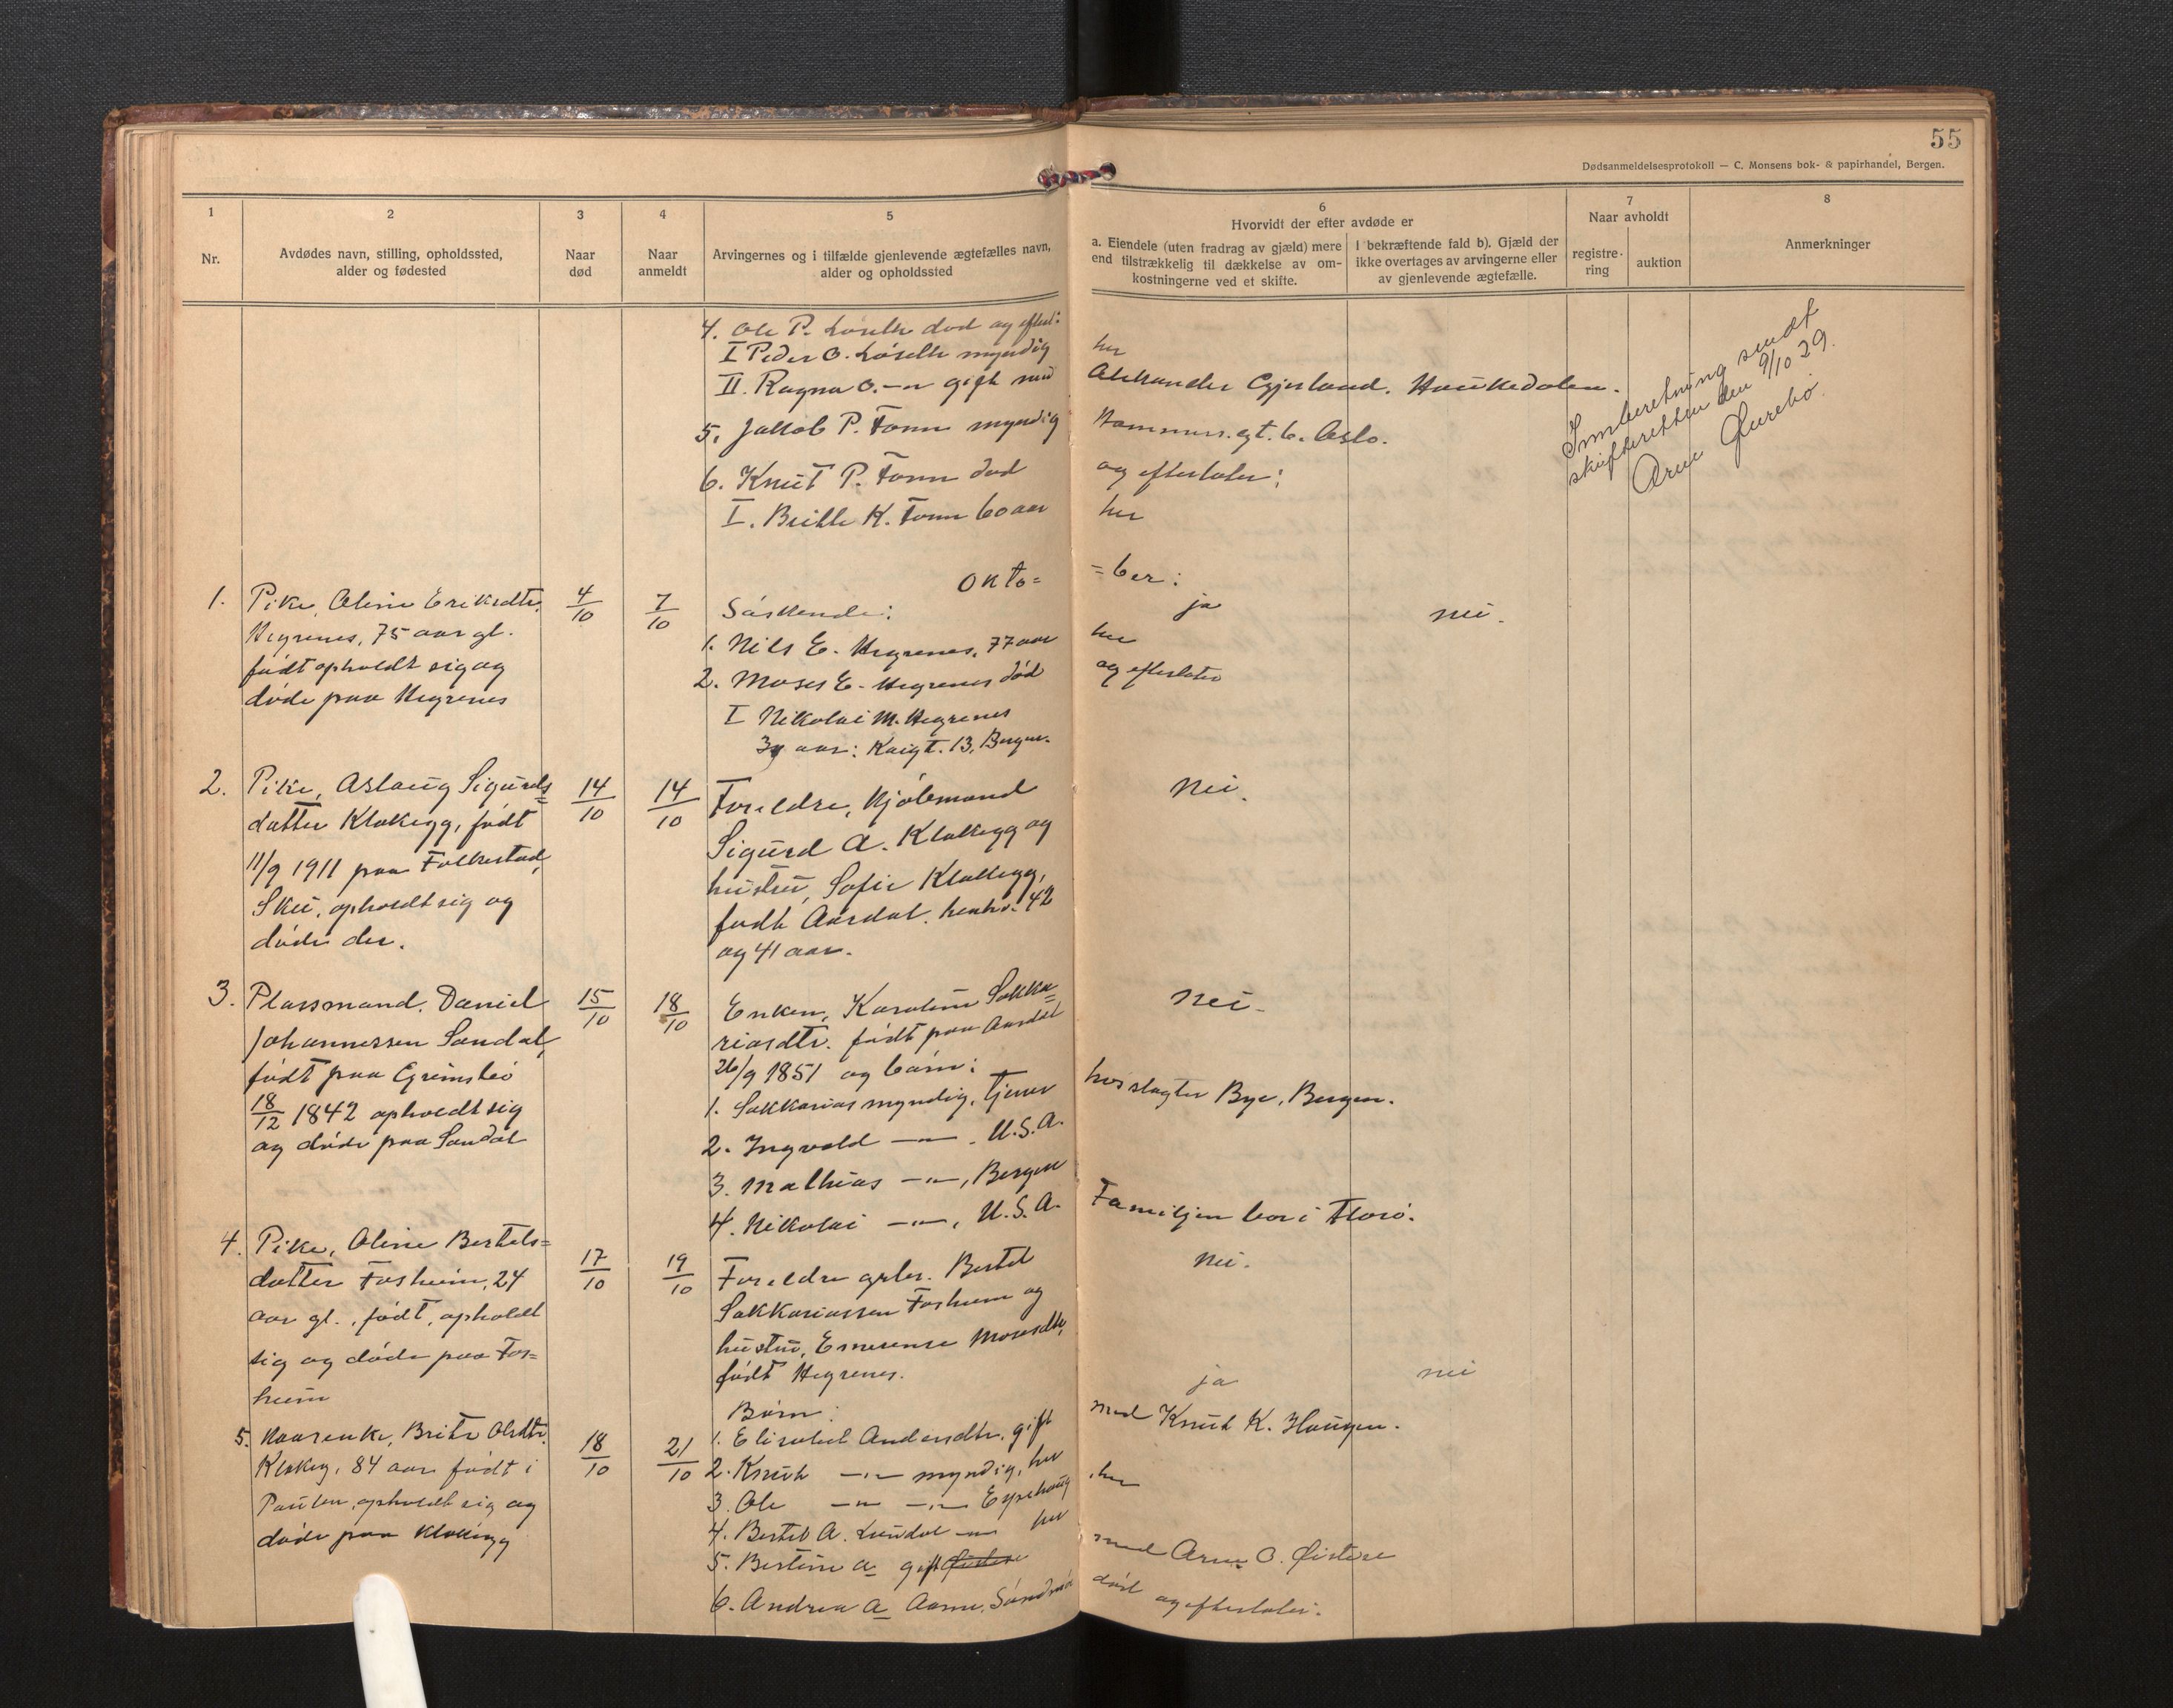 55
Dødsanmeldelsesprotokoll — C. Monsens bok- & papirhandel, Bergen.
1
Nr.
2
Avdødes navn, stilling, opholdssted,
alder og fødested
3
Naar
død
4
Naar
anmeldt
5
Arvingernes og i tilfælde gjenlevende ægtefælles navn,
alder og opholdssted
6
Hvorvidt der efter avdøde er
a. Eiendele (uten fradrag av gjæld) mere
end tilstrækkelig til dækkelse av om-
kostningerne ved et skifte.
I bekræftende fald b). Gjæld der
ikke overtages av arvingerne eller
av gjenlevende ægtefælle.
7
Naar avholdt
registre-
ring
auktion
8
Anmerkninger
4. Ole P. død og efterl:
I Peder O. myndig her
II. Ragna O. —"— gift med Aleksander Gjerland. Haukedalen.
5. Jakob P. Fonn myndig gt. 6. Oslo.
6. Knut P. Fonn død og efterlater:
I. Brithe K. Fonn 60 aar her
Innberetning sendt
skifteretten den 9/10 29.
Arne Flurebø.
Okto= =ber:
1. Pike, Oline Eriksdtr. 4/10 7/10 Søskende: ja nei.
Hegrenes, 75 aar gl. 1. Nils E. Hegrenes, 77 aar her
født opholdt sig og 2. Moses E. Hegrenes død og efterlater
døde paa Hegrenes I Nikolai M. Hegrenes
aar: Kaigt. 13, Bergen.
2. Pike, Aslaug Sigurds= 14/10 14/10 Foreldre, Kjøbmand Nei.
datter Klakegg, født Sigurd A. Klakegg og
11/9 1911 paa Folkestad, hustru, Sofie Klakegg,
Skei, opholdt sig og født Aardal. henhv. 42
døde der. og 41 aar.
3. Plassmand, Daniel 15/10 18/10 Enken, Karoline Sakka= Nei.
Johannessen Sandal, riasdtr. født paa Aardal
født paa Egrimsbø 26/9 1851 og børn:
18/12 1842 opholdt sig 1. Sakkarias myndig, tjener hos slagter Bye, Bergen.
og døde paa Sandal 2. Ingvald —"— . U.S.A.
3. Mathias —"—, Bergen
4. Nikolai —"—, U.S.A. Familjen bor i Florø.
4. Pike, Oline Bertels= 17/10 19/10 Foreldre grbr. Bertel Nei.
datter Fosheim, 24 Sakkariassen Fosheim og
aar gl., født, opholdt hustru, Emerense Mosesdtr,
sig og døde paa Fos= født Hegrenes.
heim
5. Kaarenke, Brite Olsdtr. 18/10 21/10 Børn: ja nei
Klakeg, 84 aar født i 1. Elisabet Andersdtr. gift med Knut K. Haugen.
opholdt sig og 2. Knut —"— myndig, her
døde paa Klakegg 3. Ole —"— —"— , her
4. Bertel A. —"— her
5. Bertine A gift med Arne O.
6. Andrea A død og efterlater.